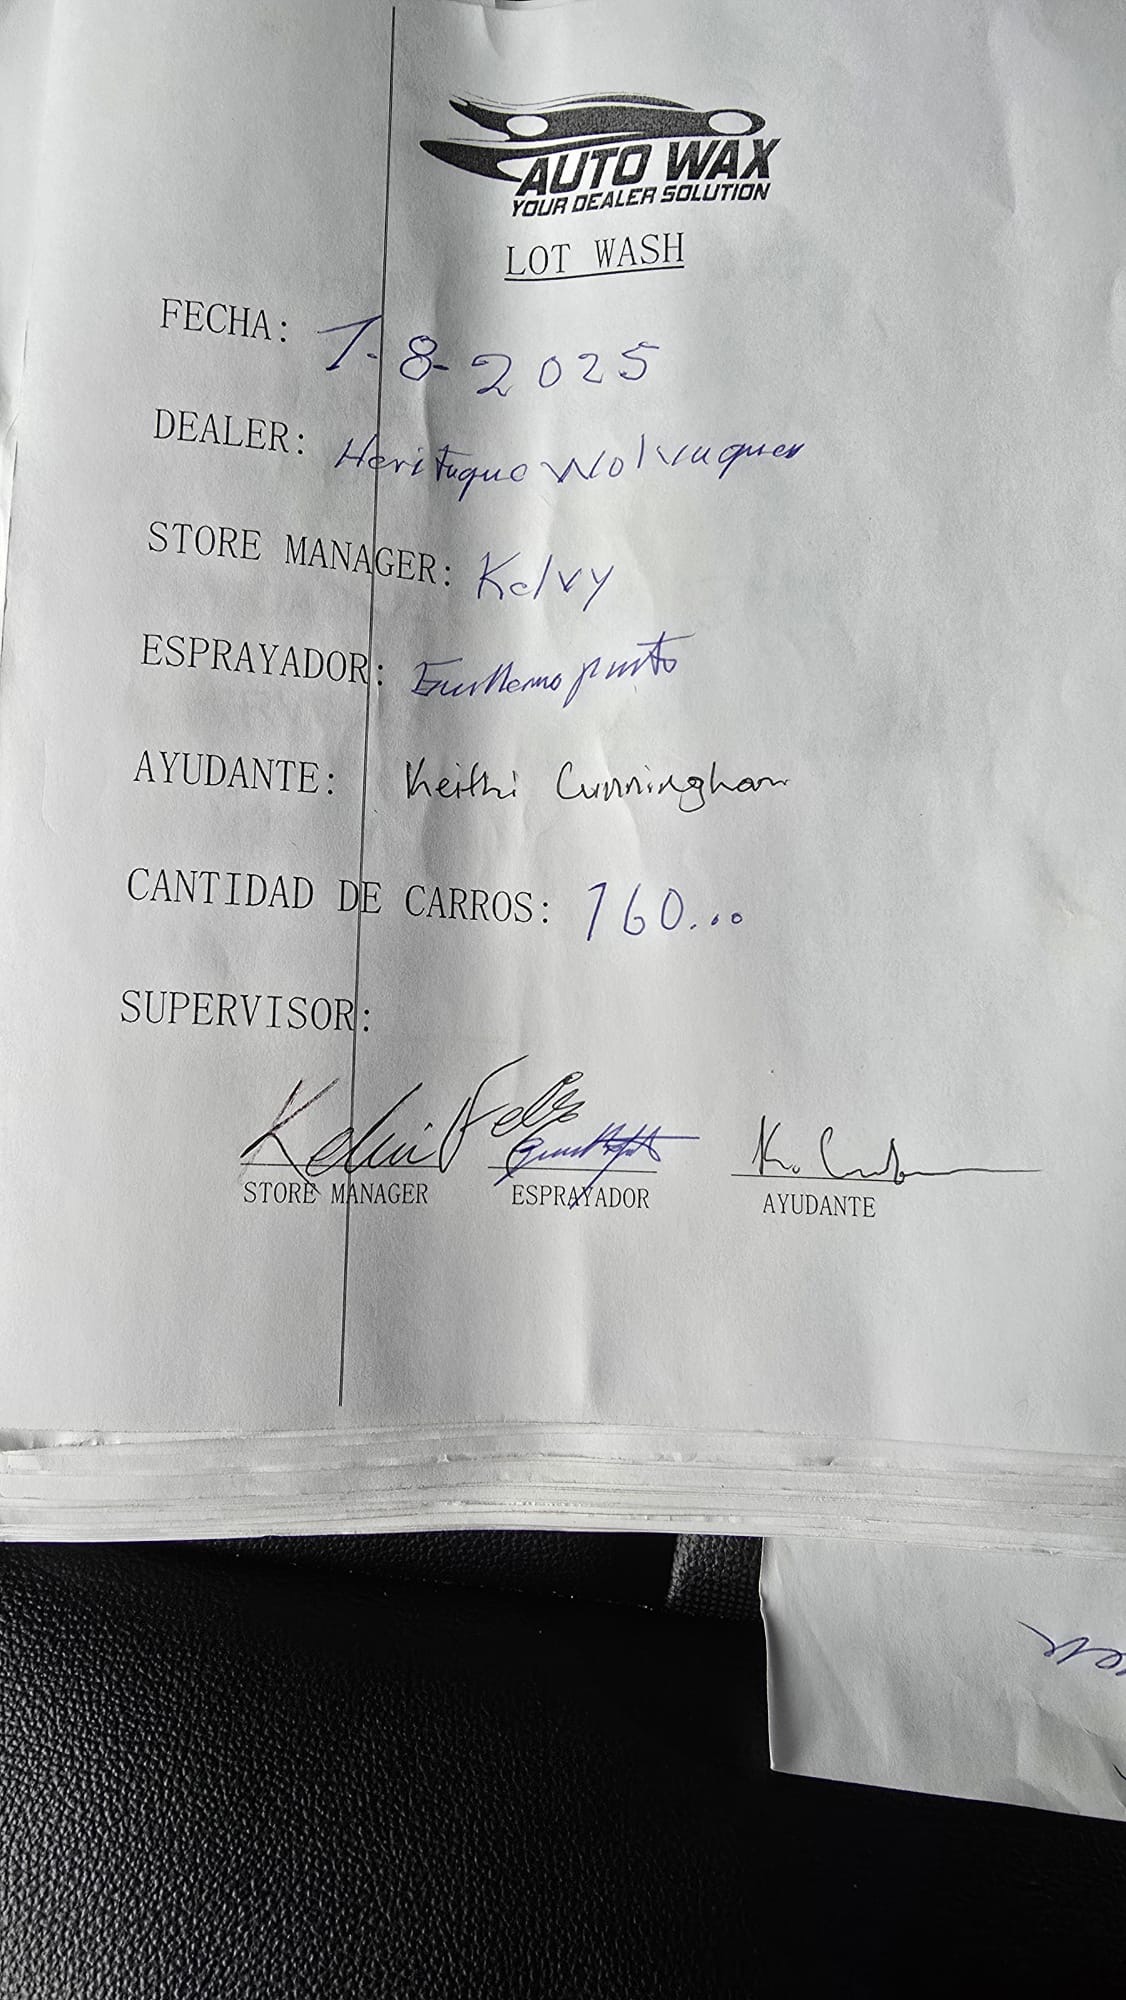 AUTO WAX
YOUR DEALER SOLUTION
LOT WASH
FECHA: 7-8-2025
DEALER: Herituque Wolvuguen
STORE MANAGER: Kelvy
ESPRAYADOR: Guillermo pinto
AYUDANTE: Keithi Cunningham
CANTIDAD DE CARROS: 160...
SUPERVISOR:
Kelvi Feliz
STORE MANAGER ESPRAYADOR AYUDANTE